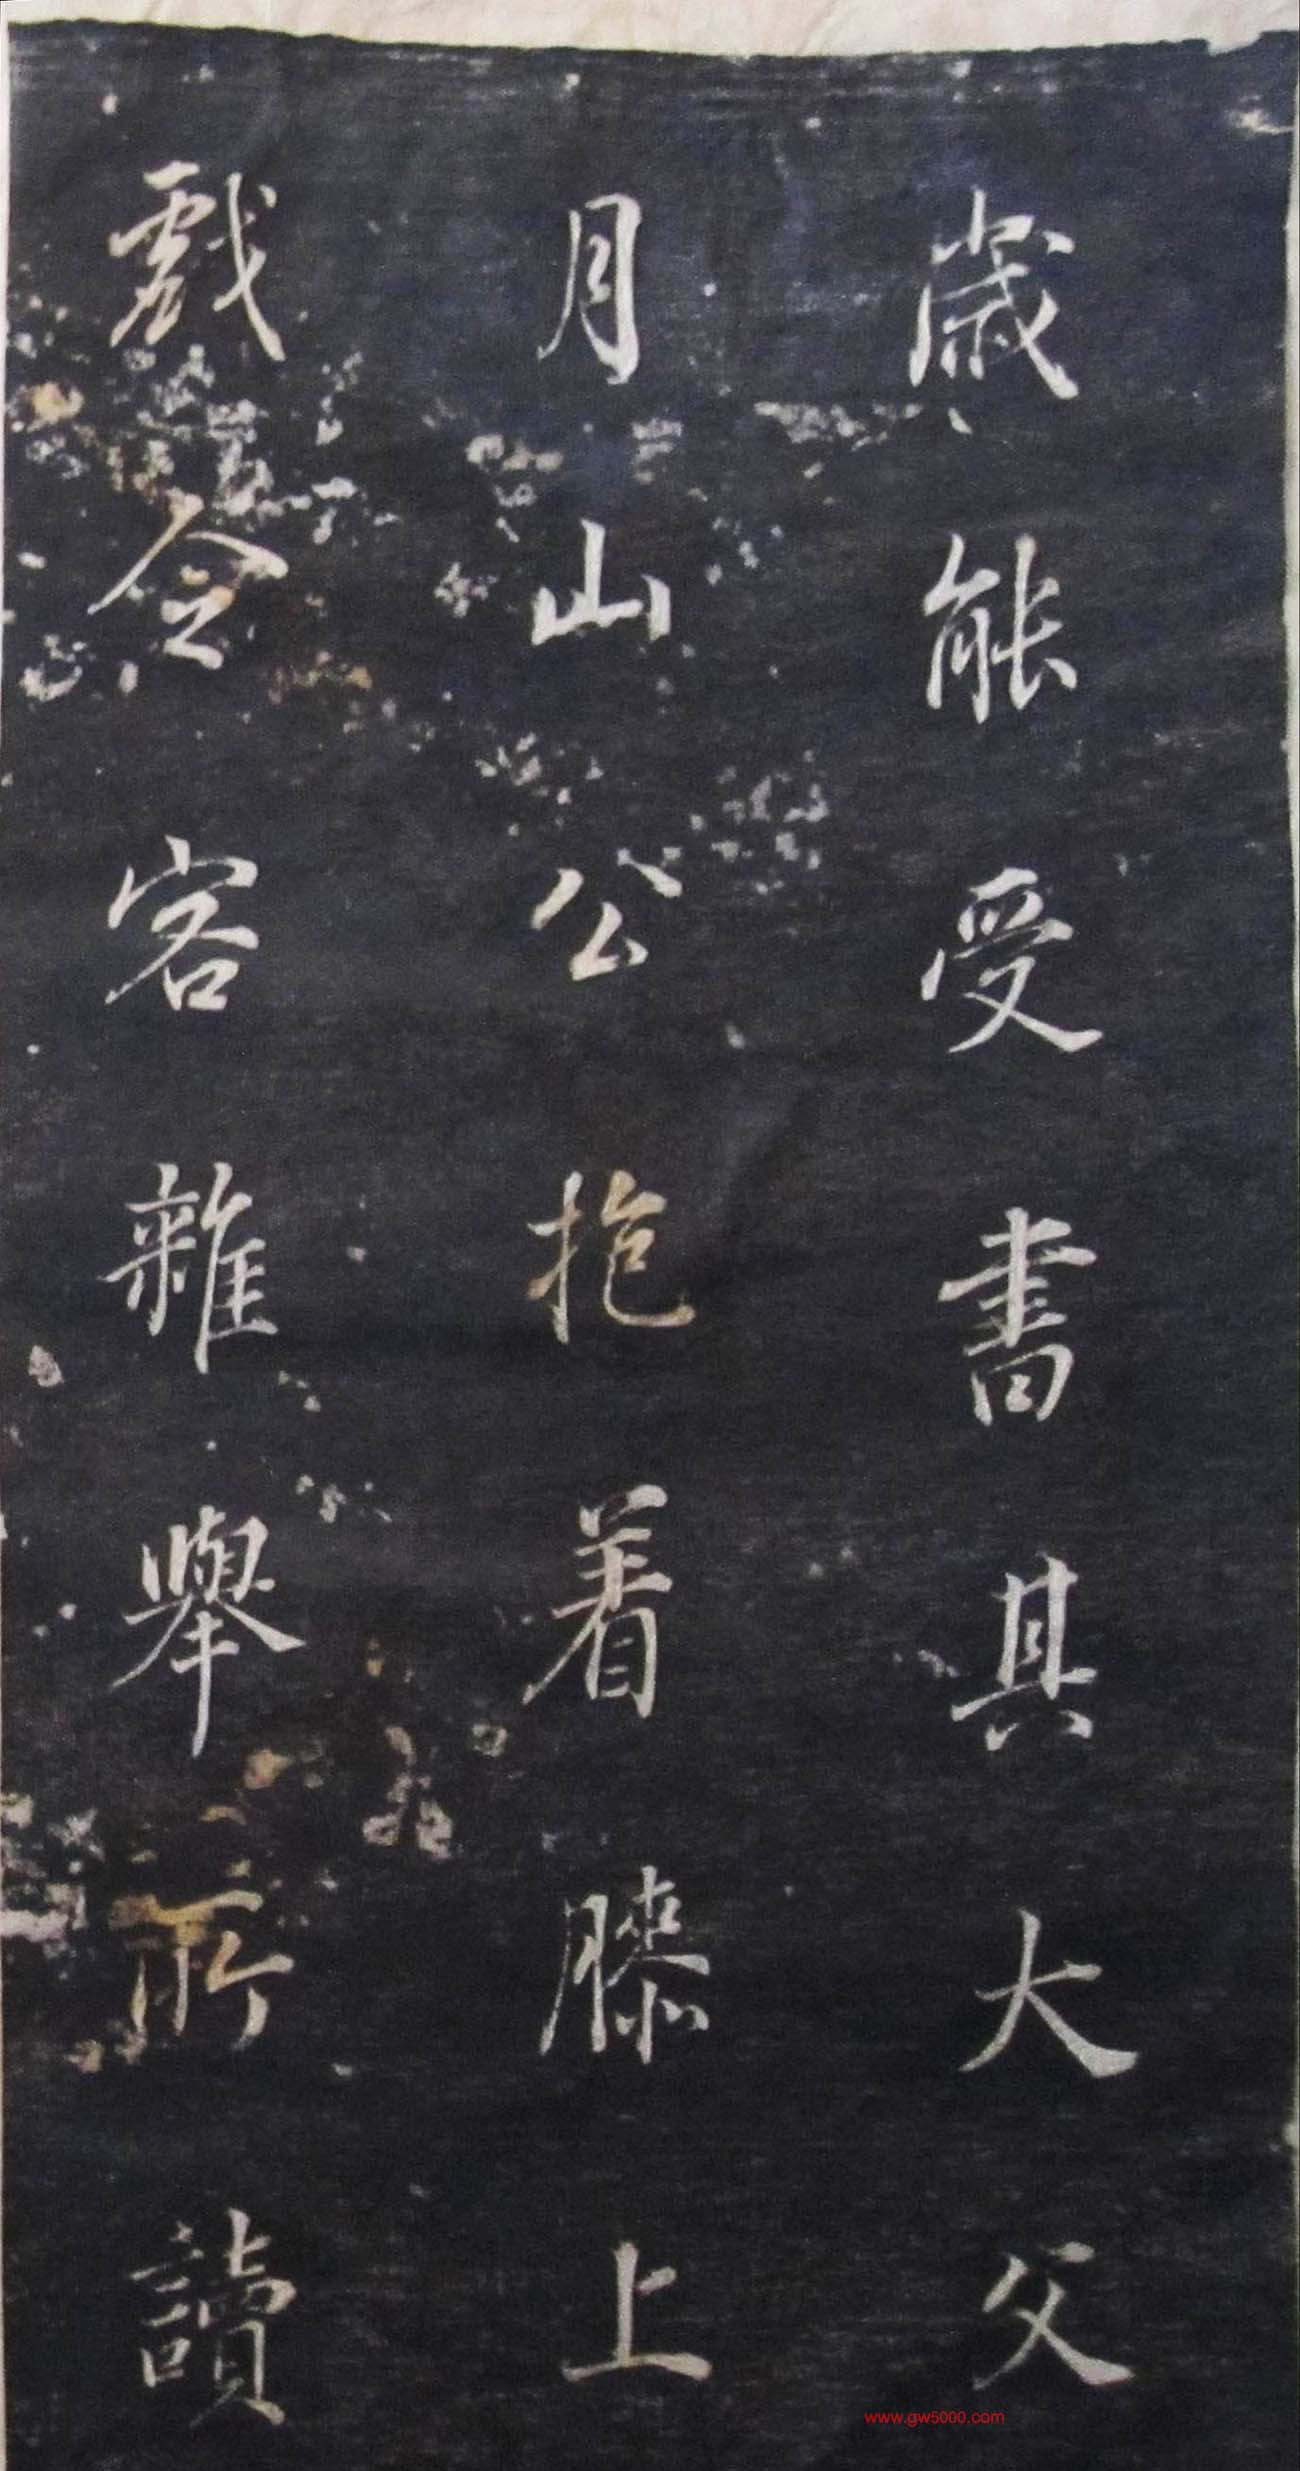 歲能受書其大父
月山公抱着膝上
戲令客雜舉所讀
www.gw5000.com